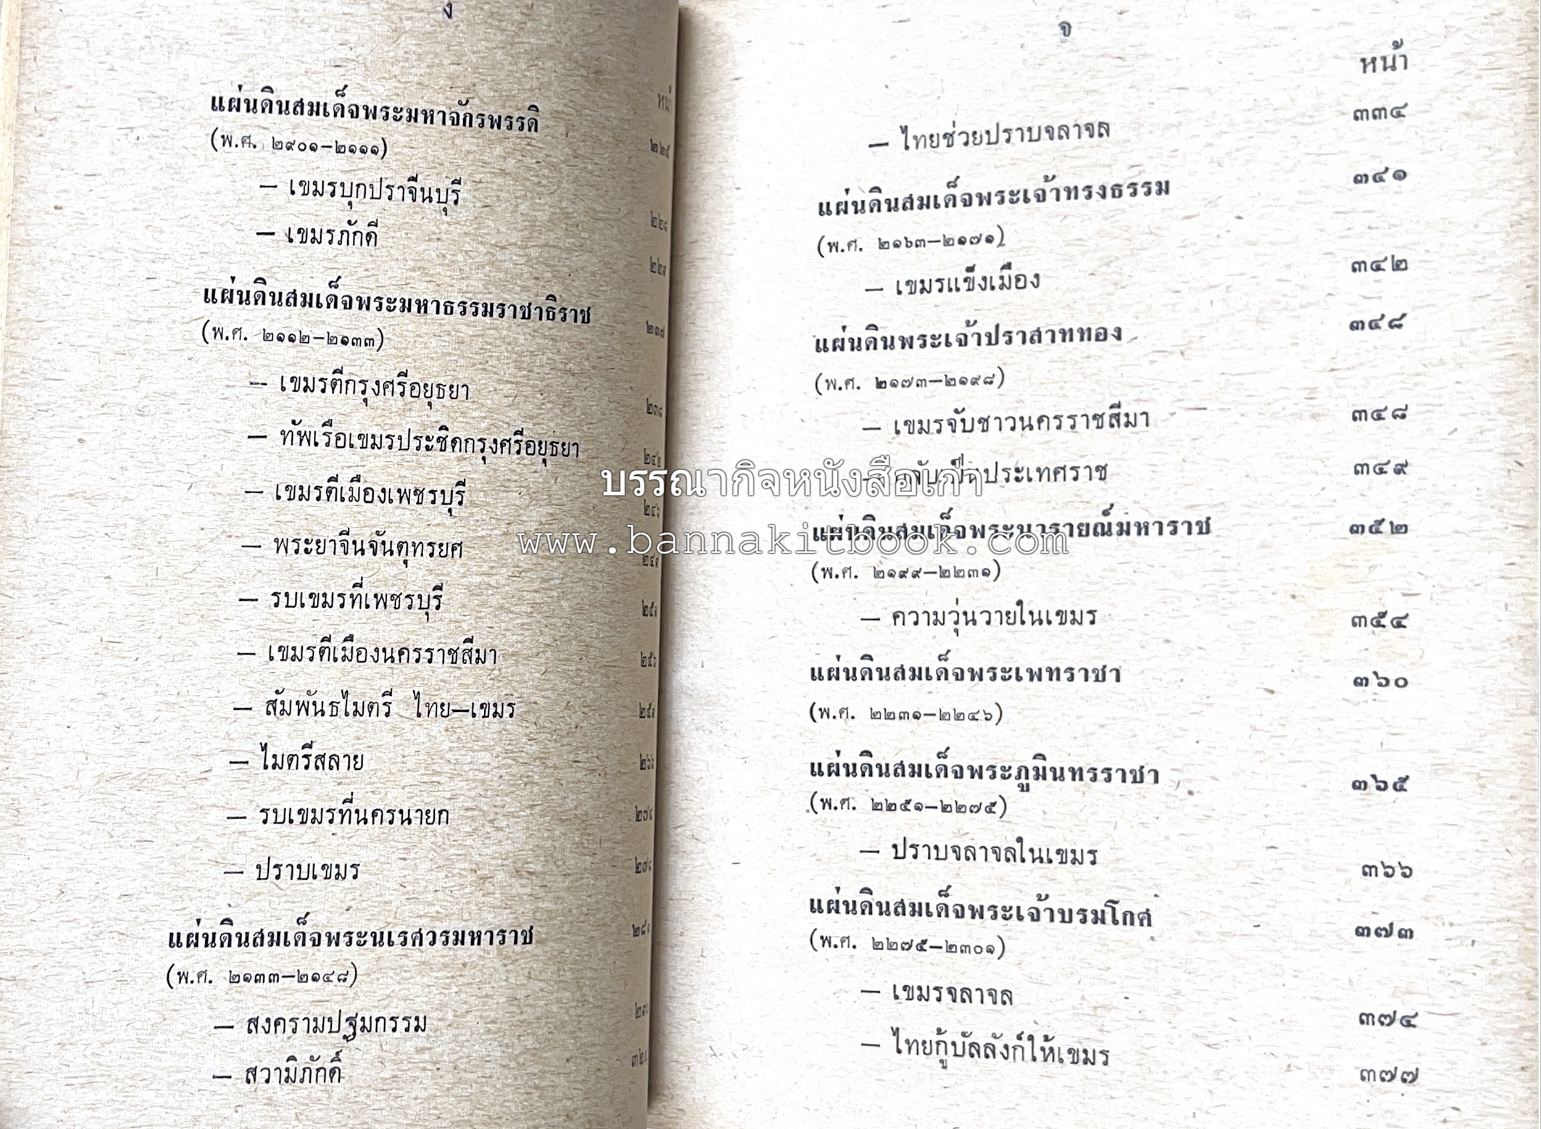 ง
แผ่นดินสมเด็จพระมหาจักรพรรดิ
(พ.ศ. ๒๙๐๑—๒๑๑๑)
— เขมรบุกปราจีนบุรี
— เขมรภักดี
แผ่นดินสมเด็จพระมหาธรรมราชาธิราช
(พ.ศ. ๒๑๑๒—๒๑๓๓)
— เขมรตีกรุงศรีอยุธยา
— ทัพเรือเขมรประชิดกรุงศรีอยุธยา
— เขมรตีเมืองเพชรบุรี
— พระยาจีนจันตุทรยศ
— รบเขมรที่เพชรบุรี
— เขมรตีเมืองนครราชสีมา
— สัมพันธไมตรี ไทย—เขมร
— ไมตรีสลาย
— รบเขมรที่นครนายก
— ปราบเขมร
แผ่นดินสมเด็จพระนเรศวรมหาราช
(พ.ศ. ๒๑๓๓—๒๑๔๘)
— สงครามปฐมกรรม
— สวามิภักดิ์
จ
หน้า
— ไทยช่วยปราบจลาจล ๓๓๔
แผ่นดินสมเด็จพระเจ้าทรงธรรม ๓๔๑
(พ.ศ. ๒๑๖๓—๒๑๗๑)
— เขมรแข็งเมือง ๓๔๒
แผ่นดินพระเจ้าปราสาททอง ๓๔๘
(พ.ศ. ๒๑๗๓—๒๑๙๘)
— เขมรจับชาวนครราชสีมา ๓๔๘
ประเทศราช ๓๔๙
แผ่นดินสมเด็จพระนารายณ์มหาราช ๓๕๒
(พ.ศ. ๒๑๙๙—๒๒๓๑)
— ความวุ่นวายในเขมร ๓๕๔
แผ่นดินสมเด็จพระเพทราชา ๓๖๐
(พ.ศ. ๒๒๓๑—๒๒๔๖)
แผ่นดินสมเด็จพระภูมินทรราชา ๓๖๕
(พ.ศ. ๒๒๕๑—๒๒๗๕)
— ปราบจลาจลในเขมร ๓๖๖
แผ่นดินสมเด็จพระเจ้าบรมโกศ ๓๗๓
(พ.ศ. ๒๒๗๕—๒๓๐๑)
— เขมรจลาจล ๓๗๔
— ไทยกู้บัลลังก์ให้เขมร ๓๗๗
บรรณากิจหนังสือเก่า
www.bannakitbook.com